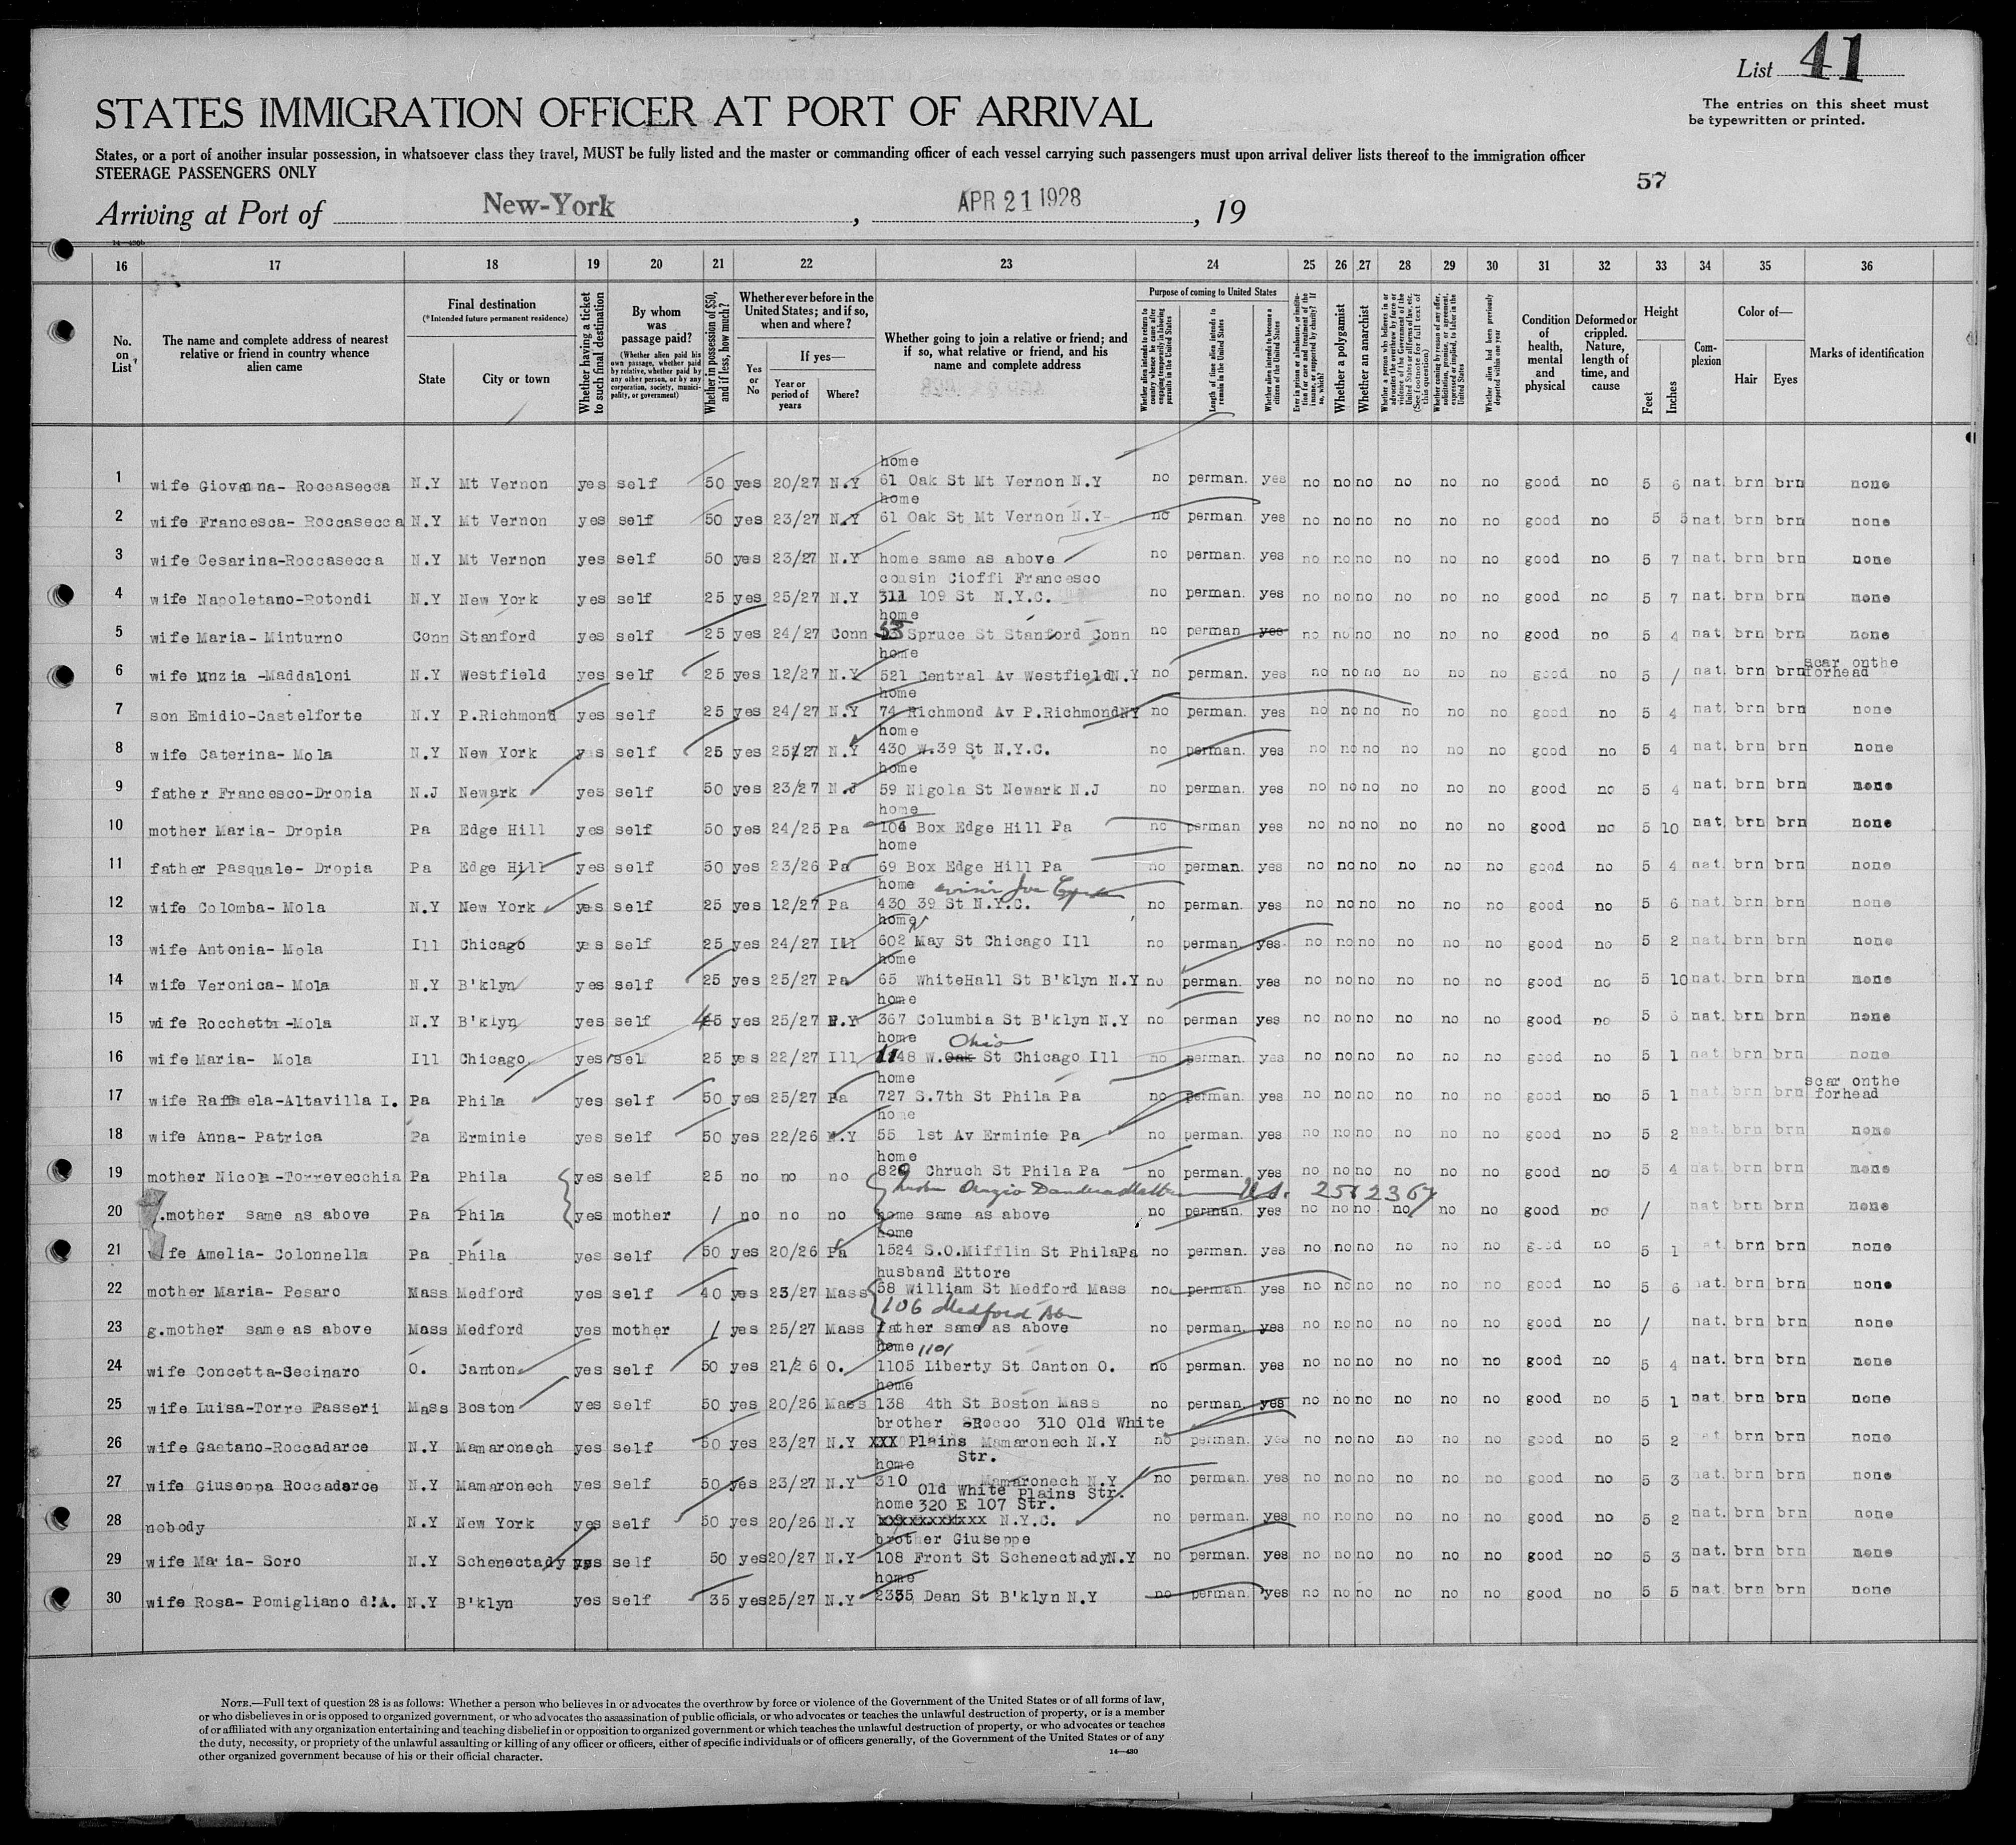 List 41
The entries on this sheet must
be typewritten or printed.
STATES IMMIGRATION OFFICER AT PORT OF ARRIVAL
States, or a port of another insular possession, in whatsoever class they travel, MUST be fully listed and the master or commanding officer of each vessel carrying such passengers must upon arrival deliver lists thereof to the immigration officer
STEERAGE PASSENGERS ONLY
57
Arriving at Port of New-York , APR 21 1928 , 19
16 17 18 19 20 21 22 23 24 25 26 27 28 29 30 31 32 33 34 35 36
No. on List
The name and complete address of nearest relative or friend in country whence alien came
Final destination
(*Intended future permanent residence)
State
City or town
Whether having a ticket to such final destination
By whom was passage paid?
(Whether alien paid his own passage, whether paid by relative, whether paid by any other person, or by any corporation, society, municipality, or government)
Whether in possession of $50, and if less, how much?
Whether ever before in the United States; and if so, when and where?
Yes or No
If yes—
Year or period of years
Where?
Whether going to join a relative or friend; and if so, what relative or friend, and his name and complete address
Purpose of coming to United States
Whether alien intends to return to country whence he came after engaging temporarily in laboring pursuits in the United States
Length of time alien intends to remain in the United States
Whether alien intends to become a citizen of the United States
Ever in prison or almshouse, or institution for care and treatment of the insane, or supported by charity? If so, which?
Whether a polygamist
Whether an anarchist
Whether a person who believes in or advocates the overthrow by force or violence of the Government of the United States or all forms of law, etc. (See footnote for full text of this question)
Whether coming by reason of any offer, solicitation, promise, or agreement, expressed or implied, to labor in the United States
Whether alien had been previously deported within one year
Condition of health, mental and physical
Deformed or crippled. Nature, length of time, and cause
Height
Feet
Inches
Complexion
Color of—
Hair
Eyes
Marks of identification
home
1 wife Giovanna- Roccasecca N.Y Mt Vernon yes self 50 yes 20/27 N.Y 61 Oak St Mt Vernon N.Y no perman. yes no no no no no no good no 5 6 nat. brn brn none
home
2 wife Francesca- Roccasecca N.Y Mt Vernon yes self 50 yes 23/27 N.Y 61 Oak St Mt Vernon N.Y no perman. yes no no no no no no good no 5 5 nat. brn brn none
3 wife Cesarina-Roccasecca N.Y Mt Vernon yes self 50 yes 23/27 N.Y home same as above no perman. yes no no no no no no good no 5 7 nat. brn brn none
cousin Cioffi Francesco
4 wife Napoletano-Rotondi N.Y New York yes self 25 yes 25/27 N.Y 311 109 St N.Y.C. no perman. yes no no no no no no good no 5 7 nat. brn brn none
home
5 wife Maria- Minturno Conn Stanford yes self 25 yes 24/27 Conn 53 Spruce St Stanford Conn no perman yes no no no no no no good no 5 4 nat. brn brn none
home
6 wife Unzia -Maddaloni N.Y Westfield yes self 25 yes 12/27 N.Y 521 Central Av Westfield N.Y no perman. yes no no no no no no good no 5 / nat. brn brn scar onthe forhead
home
7 son Emidio-Castelforte N.Y P.Richmond yes self 25 yes 24/27 N.Y 74 Richmond Av P.Richmond NY no perman. yes no no no no no no good no 5 4 nat. brn brn none
home
8 wife Caterina- Mola N.Y New York yes self 25 yes 25/27 N.Y 430 W.39 St N.Y.C. no perman. yes no no no no no no good no 5 4 nat. brn brn none
home
9 father Francesco-Dropia N.J Newark yes self 50 yes 23/27 N.J 59 Nigola St Newark N.J no perman. yes no no no no no no good no 5 4 nat. brn brn none
home
10 mother Maria- Dropia Pa Edge Hill yes self 50 yes 24/25 Pa 106 Box Edge Hill Pa no perman yes no no no no no no good no 5 10 nat. brn brn none
home
11 father Pasquale- Dropia Pa Edge Hill yes self 50 yes 23/26 Pa 69 Box Edge Hill Pa no perman. yes no no no no no no good no 5 4 nat. brn brn none
home Joe
12 wife Colomba- Mola N.Y New York yes self 25 yes 12/27 Pa 430 39 St N.Y.C. no perman. yes no no no no no no good no 5 6 nat. brn brn none
home
13 wife Antonia- Mola Ill Chicago yes self 25 yes 24/27 Ill 602 May St Chicago Ill no perman. yes no no no no no no good no 5 2 nat. brn brn none
home
14 wife Veronica- Mola N.Y B'klyn yes self 25 yes 25/27 Pa 65 WhiteHall St B'klyn N.Y no perman. yes no no no no no no good no 5 10 nat. brn brn none
home
15 wife Rocchetta -Mola N.Y B'klyn yes self 45 yes 25/27 N.Y 367 Columbia St B'klyn N.Y no perman yes no no no no no no good no 5 6 nat. brn brn none
home Ohio
16 wife Maria- Mola Ill Chicago yes sel 25 yes 22/27 Ill 1148 W.Oak St Chicago Ill no perman. yes no no no no no no good no 5 1 nat. brn brn none
home
17 wife Raffaela-Altavilla I. Pa Phila yes self 50 yes 25/27 Pa 727 S.7th St Phila Pa no perman. yes no no no no no no good no 5 1 nat. brn brn scar onthe forhead
home
18 wife Anna- Patrica Pa Erminie yes self 50 yes 22/26 N.Y 55 1st Av Erminie Pa no perman. yes no no no no no no good no 5 2 nat. brn brn none
home
19 mother Nicola -Torrevecchia Pa Phila yes self 25 no no no 829 Chruch St Phila Pa no perman. yes no no no no no no good no 5 4 nat. brn brn none
Orazio U.S. 2512367
20 g.mother same as above Pa Phila yes mother / no no no home same as above no perman. yes no no no no no no good no / nat brn brn none
home
21 wife Amelia- Colonnella Pa Phila yes self 50 yes 20/26 Pa 1524 S.O.Mifflin St PhilaPa no perman. yes no no no no no no good no 5 1 nat. brn brn none
husband Ettore
22 mother Maria- Pesaro Mass Medford yes self 40 yes 25/27 Mass 58 William St Medford Mass no perman. yes no no no no no no good no 5 6 nat. brn brn none
106 Medford
23 g.mother same as above Mass Medford yes mother / yes 25/27 Mass father same as above no perman. yes no no no no no no good no / nat. brn brn none
home 1101
24 wife Concetta-Secinaro O. Canton yes self 50 yes 21/26 O. 1105 Liberty St Canton O. no perman. yes no no no no no no good no 5 4 nat. brn brn none
home
25 wife Luisa-Torre Passeri Mass Boston yes self 50 yes 20/26 Mass 138 4th St Boston Mass no perman. yes no no no no no no good no 5 1 nat. brn brn none
brother Rocco 310 Old White
26 wife Gaetano-Roccadarce N.Y Mamaronech yes self 50 yes 23/27 N.Y XXX Plains Mamaronech N.Y no perman. yes no no no no no no good no 5 2 nat. brn brn none
Str.
home
27 wife Giuseppa Roccadarce N.Y Mamaronech yes self 50 yes 23/27 N.Y 310 Mamaronech N.Y no perman. yes no no no no no no good no 5 3 nat. brn brn none
Old White Plains Str.
home 320 E 107 Str.
28 nobody N.Y New York yes self 50 yes 20/26 N.Y xxxxxxxxxxx N.Y.C. no perman. yes no no no no no no good no 5 2 nat. brn brn none
brother Giuseppe
29 wife Maria- Soro N.Y Schenectady yes self 50 yes 20/27 N.Y 108 Front St Schenectady N.Y no perman. yes no no no no no no good no 5 3 nat. brn brn none
home
30 wife Rosa- Pomigliano d'A. N.Y B'klyn yes self 35 yes 25/27 N.Y 2335 Dean St B'klyn N.Y no perman. yes no no no no no no good no 5 5 nat. brn brn none
NOTE.—Full text of question 28 is as follows: Whether a person who believes in or advocates the overthrow by force or violence of the Government of the United States or of all forms of law,
or who disbelieves in or is opposed to organized government, or who advocates the assassination of public officials, or who advocates or teaches the unlawful destruction of property, or is a member
of or affiliated with any organization entertaining and teaching disbelief in or opposition to organized government or which teaches the unlawful destruction of property, or who advocates or teaches
the duty, necessity, or propriety of the unlawful assaulting or killing of any officer or officers, either of specific individuals or of officers generally, of the Government of the United States or of any
other organized government because of his or their official character.
14—430